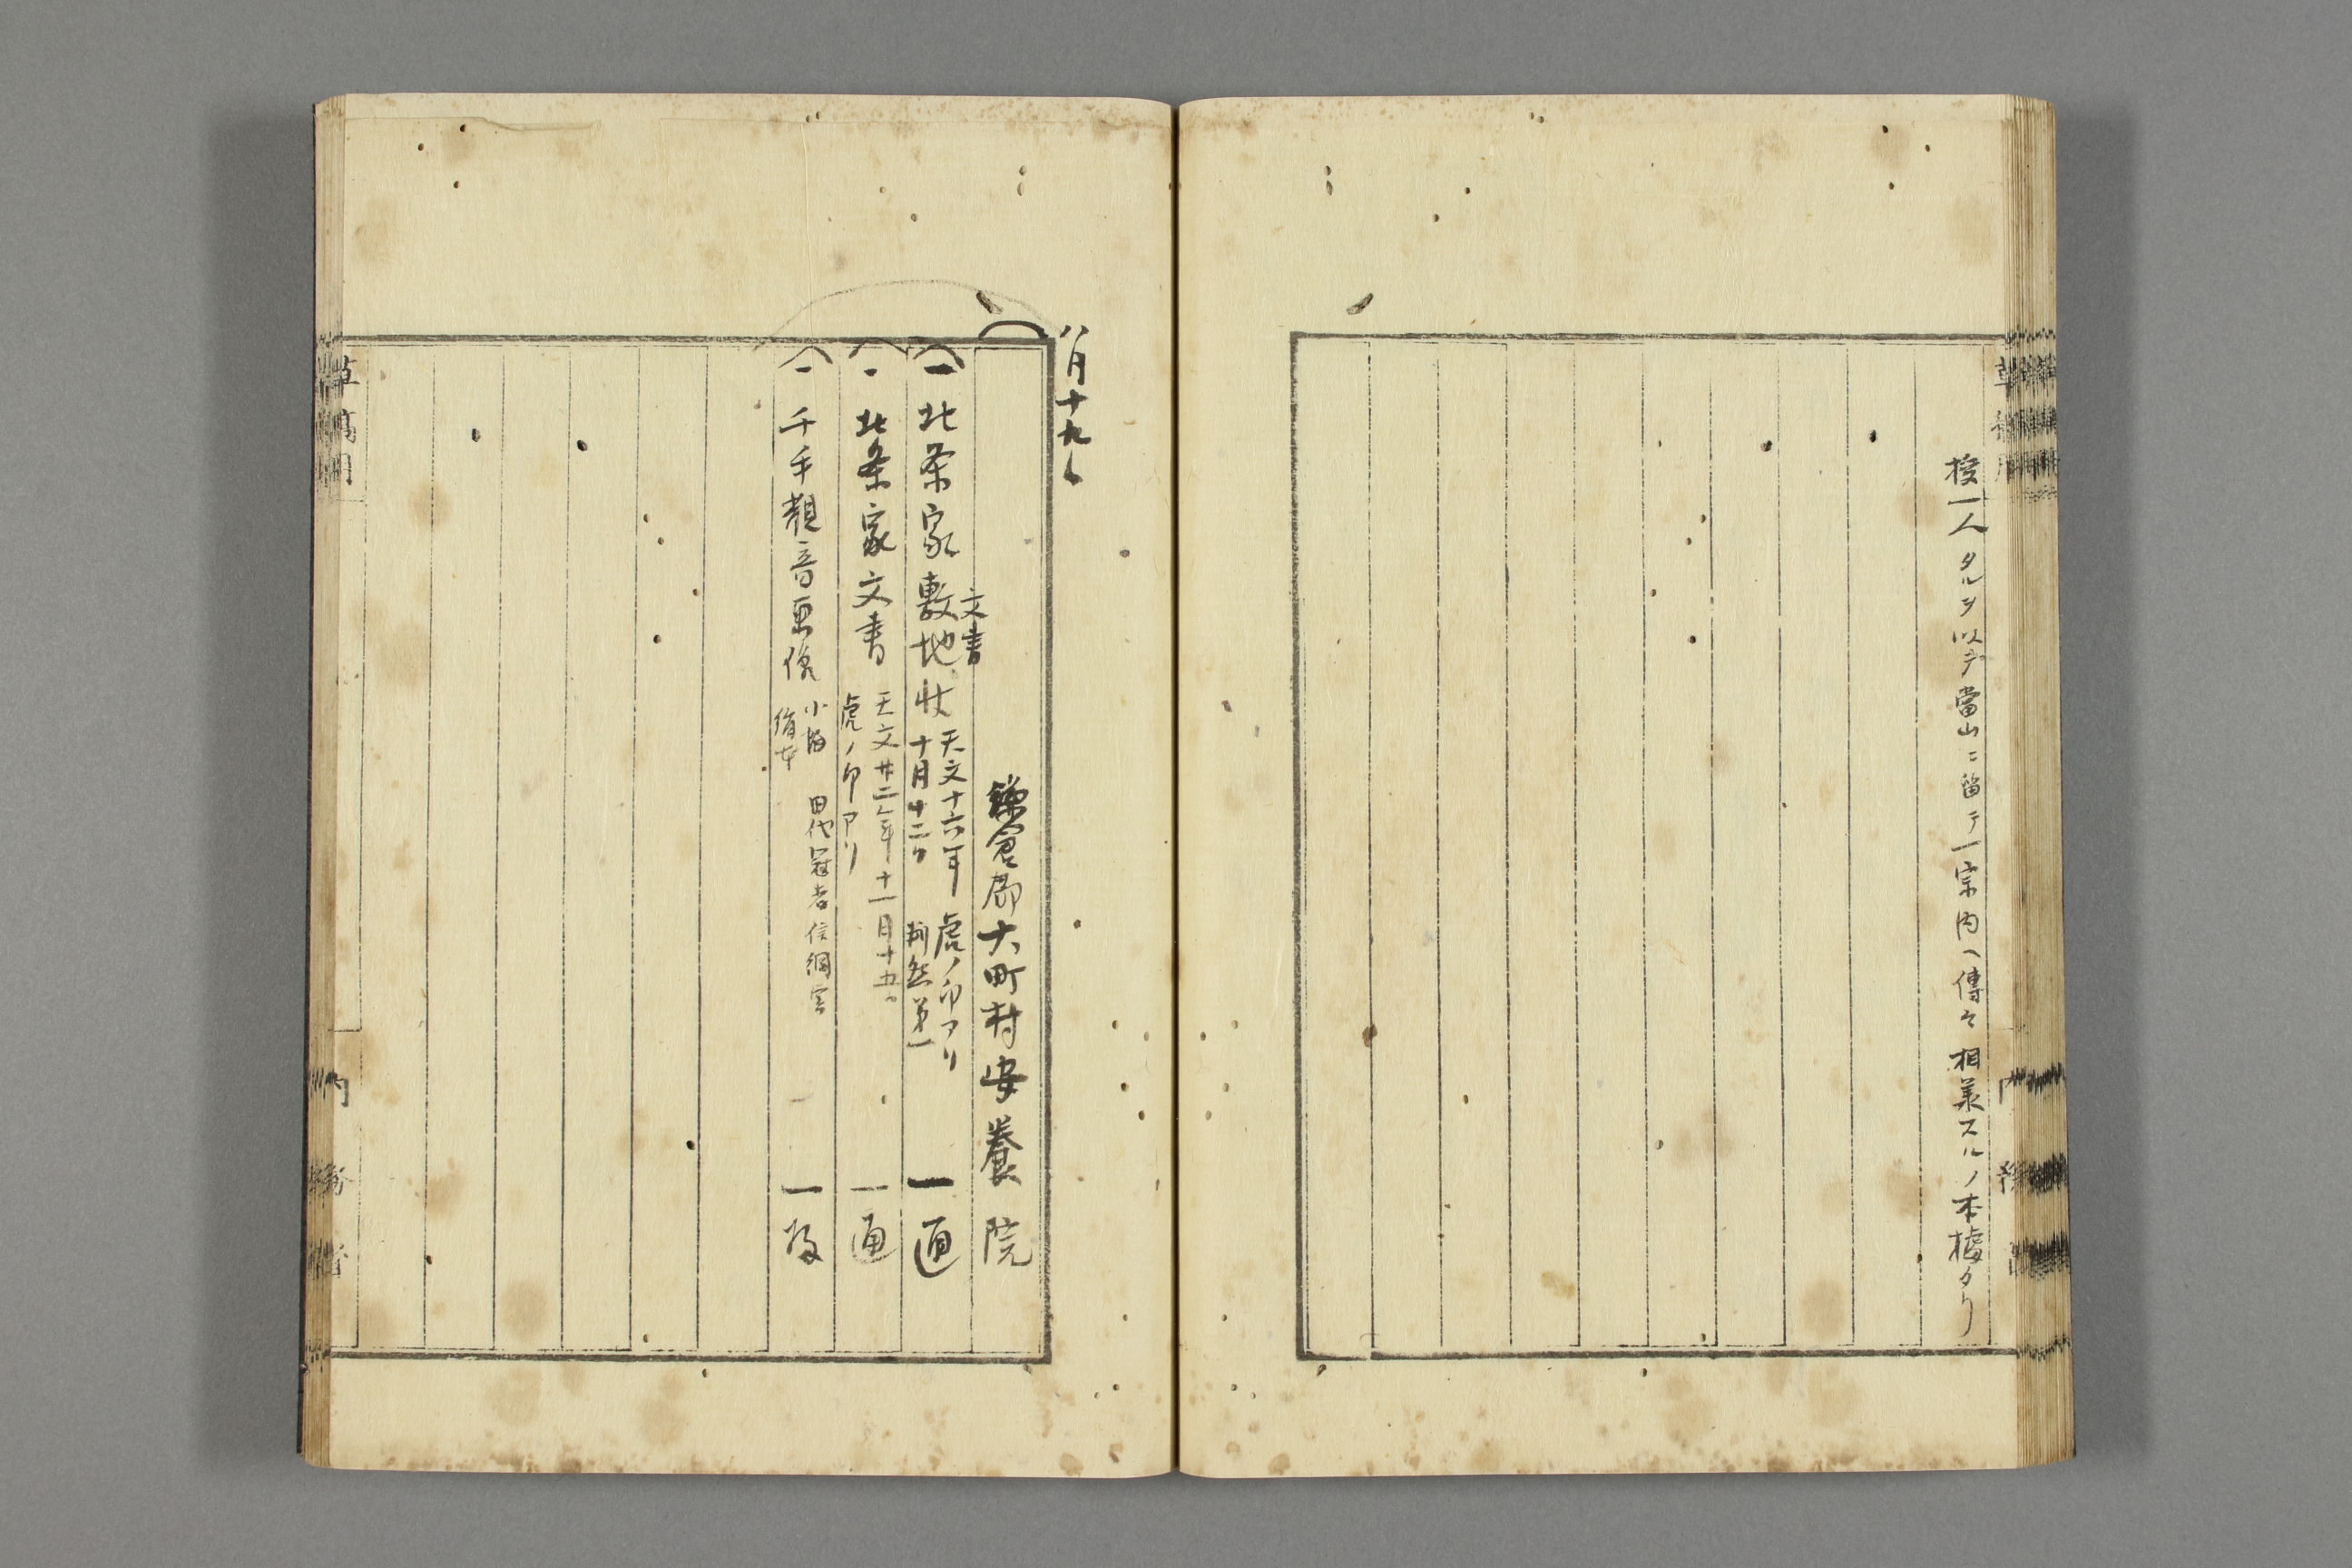 授一人タルヲ以テ當山ニ留テ一宗内ヘ傳々相義スルノ本據タリ
八月十九日
鎌倉郡大町村安養院
一 北条家敷地状 天文十六年 虎ノ印アリ 一通
文書
十月十二日 判然第一
一 北条家文書 天文廿二年十一月十五日 一通
虎ノ印アリ
一 千手観音画像 小幅 田代冠者信綱 一
絹本
草稿用
内